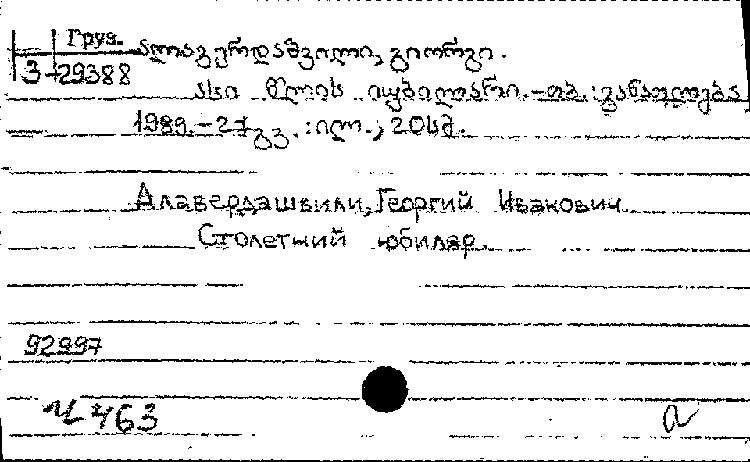 Груз.
3-29388
ალავერდაშვილი, გიორგი.
ასი წლის იუბილარი. - თბ. : განათლება
1989. - 27 გვ. : ილ., 20სმ.
Алавердашвили, Георгий Иванович
Столетний юбиляр.
92997
463
a